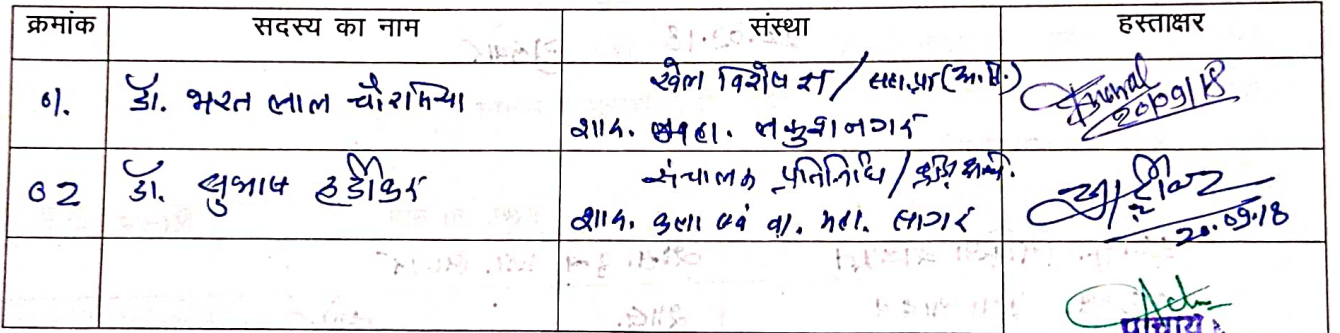 क्रमांक सदस्य का नाम संस्था हस्ताक्षर
01. डॉ. भरत लाल चौरसिया खेल विशेषज्ञ / सहा.प्रा. (अ.वि.)
शास. महा. लवकुशनगर
20/09/18
02 डॉ. सुभाष हर्डीकर संचालक प्रतिनिधि /
शास. कला एवं वा. महा. सागर
20.09.18
प्राचार्य